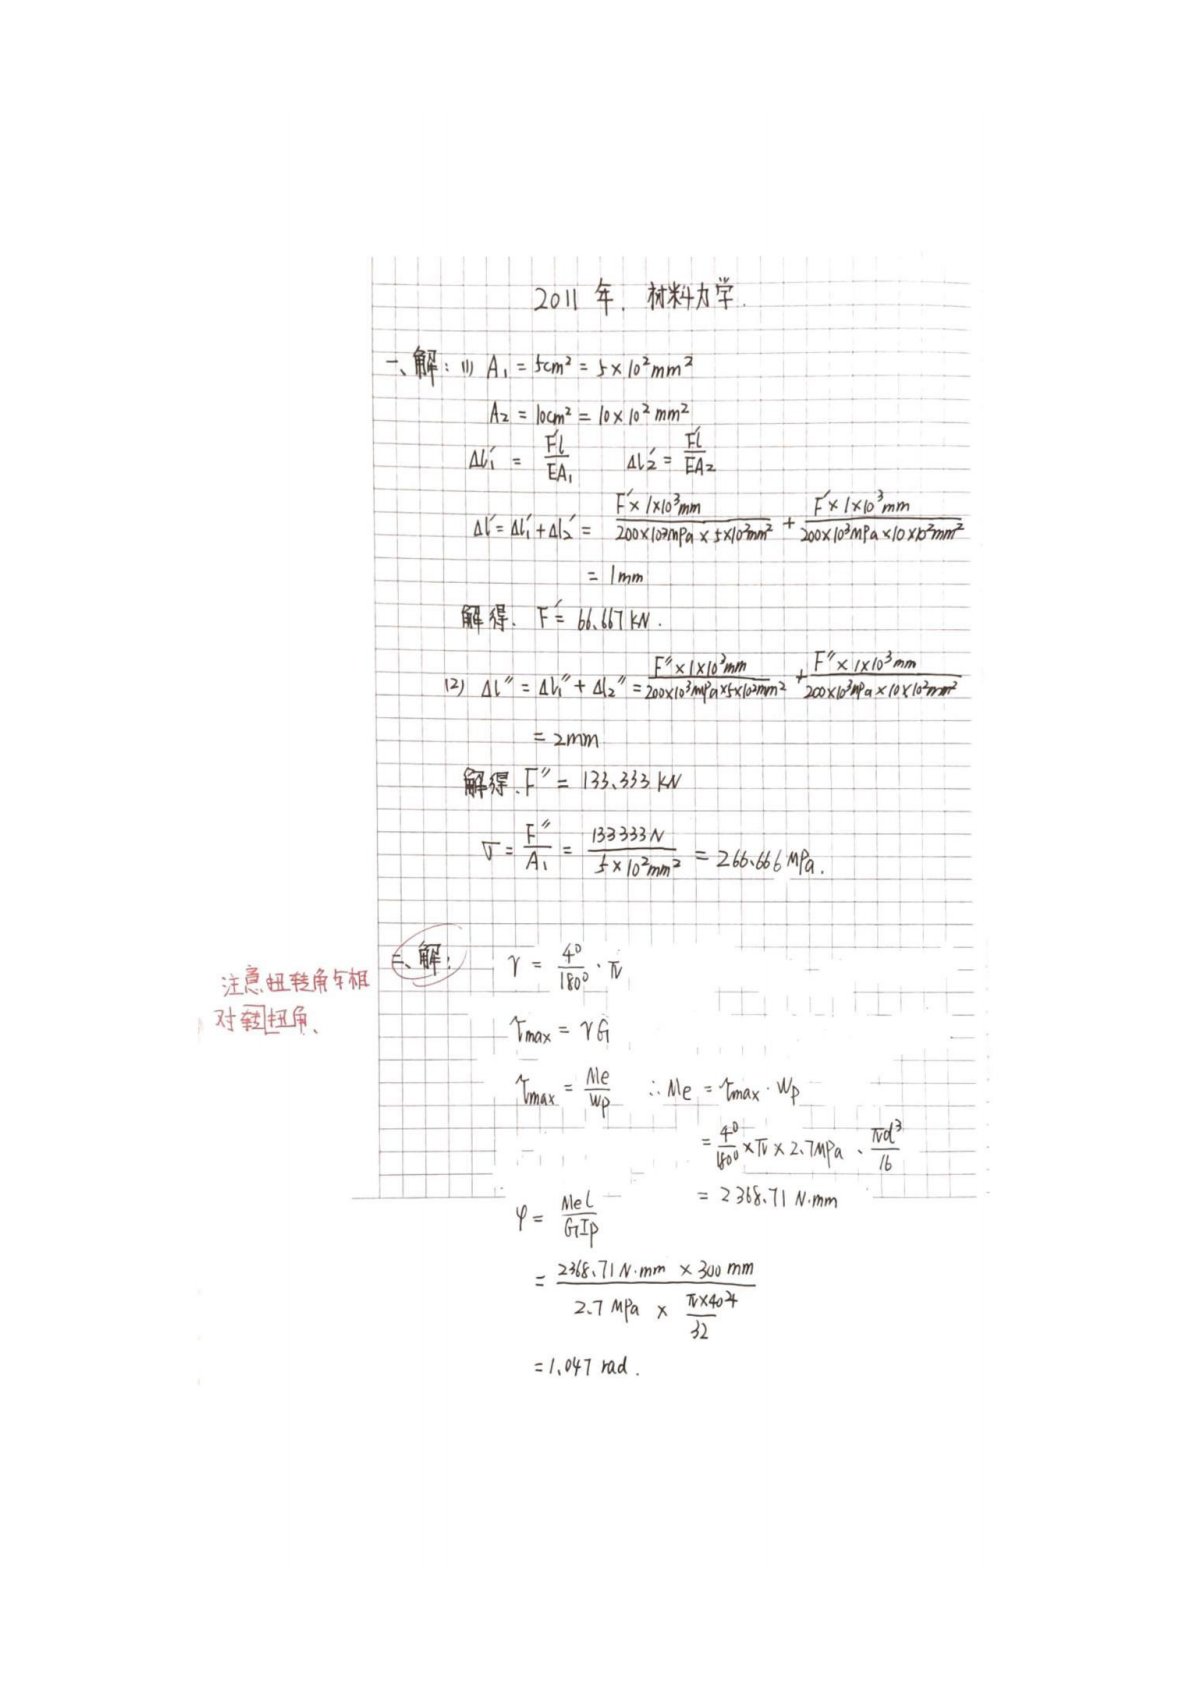 2011 年. 材料力学.
一、解: (1) A₁ = 5cm² = 5×10²mm²
A₂ = 10cm² = 10×10²mm²
Δl₁' = F'l/EA₁ Δl₂' = F'l/EA₂
Δl' = Δl₁' + Δl₂' = F'×1×10³mm/200×10³MPa×5×10²mm² + F'×1×10³mm/200×10³MPa×10×10²mm²
= 1mm
解得. F' = 66.667 kN.
(2) Δl'' = Δl₁'' + Δl₂'' = F''×1×10³mm/200×10³MPa×5×10²mm² + F''×1×10³mm/200×10³MPa×10×10²mm²
= 2mm
解得. F'' = 133.333 kN
σ = F''/A₁ = 133333N/5×10²mm² = 266.666 MPa.
二、解: γ = 4°/180° · π
注意扭转角与相
对转扭角、
τmax = γG
τmax = Me/Wp ∴ Me = τmax · Wp
= 4°/180° × π × 2.7MPa · πd³/16
= 2368.71 N·mm
φ = Mel/GIp
= 2368.71 N·mm × 300 mm / 2.7 MPa × π×40⁴/32
= 1.047 rad.